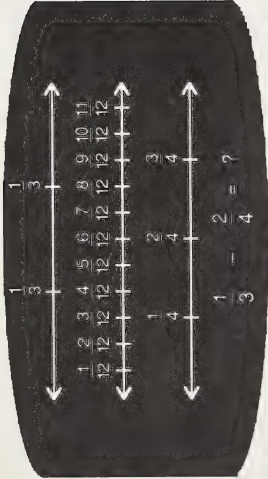 1/3 1/3
1/12 2/12 3/12 4/12 5/12 6/12 7/12 8/12 9/12 10/12 11/12
1/4 2/4 3/4
1/3 − 2/4 = ?